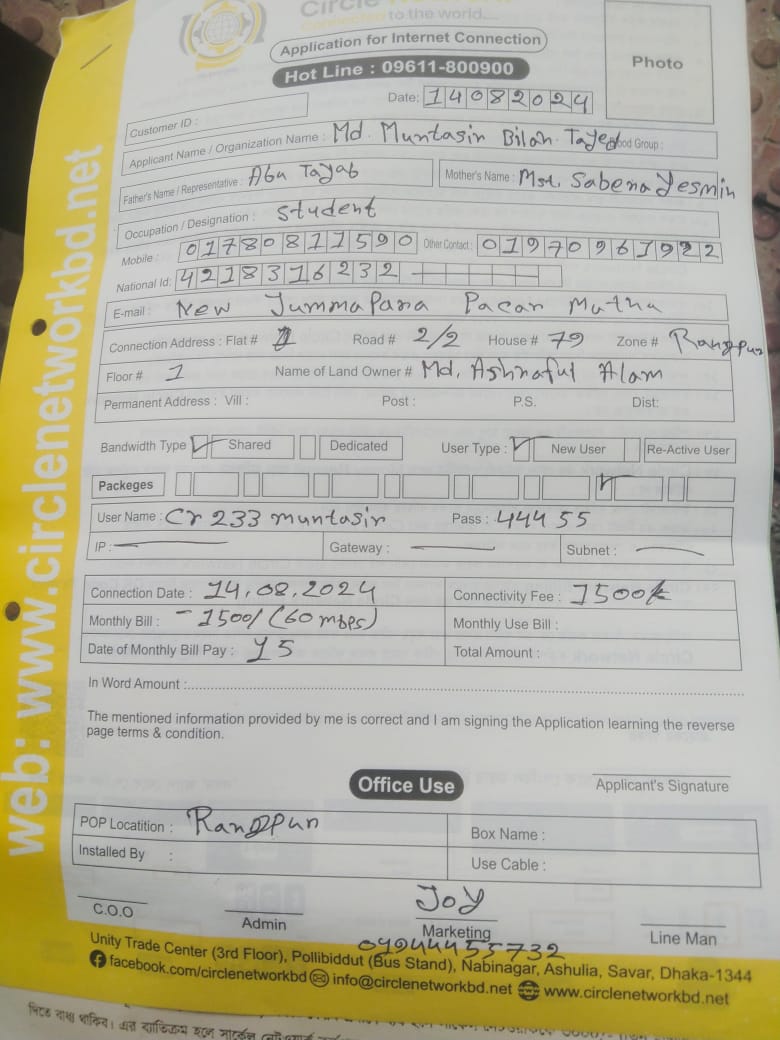 Circle
Connected to the world...
Application for Internet Connection
Hot Line : 09611-800900
Photo
Date: 14082024
Customer ID :
Applicant Name / Organization Name : Md. Muntasir Bilah Tayeb ood Group :
Father's Name / Representative : Abu Tayab Mother's Name : Mst. Sabena Yesmin
Occupation / Designation : Student
Mobile : 01780811590 Other Contact : 01970961922
National Id: 4218316232
E-mail : New Jummapara Pacar Matha
Connection Address : Flat # Road # 2/2 House # 79 Zone # Rangpur
Floor # 1 Name of Land Owner # Md. Ashraful Alam
Permanent Address : Vill : Post : P.S. Dist:
Bandwidth Type Shared Dedicated User Type : New User Re-Active User
Packeges
User Name : Cr 233 muntasir Pass : 44455
IP : Gateway : Subnet :
Connection Date : 14.08.2024 Connectivity Fee : 1500
Monthly Bill : 1500/ (60 mbps) Monthly Use Bill :
Date of Monthly Bill Pay : 15 Total Amount :
In Word Amount :
The mentioned information provided by me is correct and I am signing the Application learning the reverse
page terms & condition.
Applicant's Signature
Office Use
POP Locatition : Rangpur Box Name :
Installed By : Use Cable :
Joy
C.O.O Admin Marketing Line Man
01944455732
Unity Trade Center (3rd Floor), Pollibiddut (Bus Stand), Nabinagar, Ashulia, Savar, Dhaka-1344
facebook.com/circlenetworkbd info@circlenetworkbd.net www.circlenetworkbd.net
web: www.circlenetworkbd.net
দিতে বাধ্য থাকিব। এর ব্যতিক্রম হলে সার্কেল